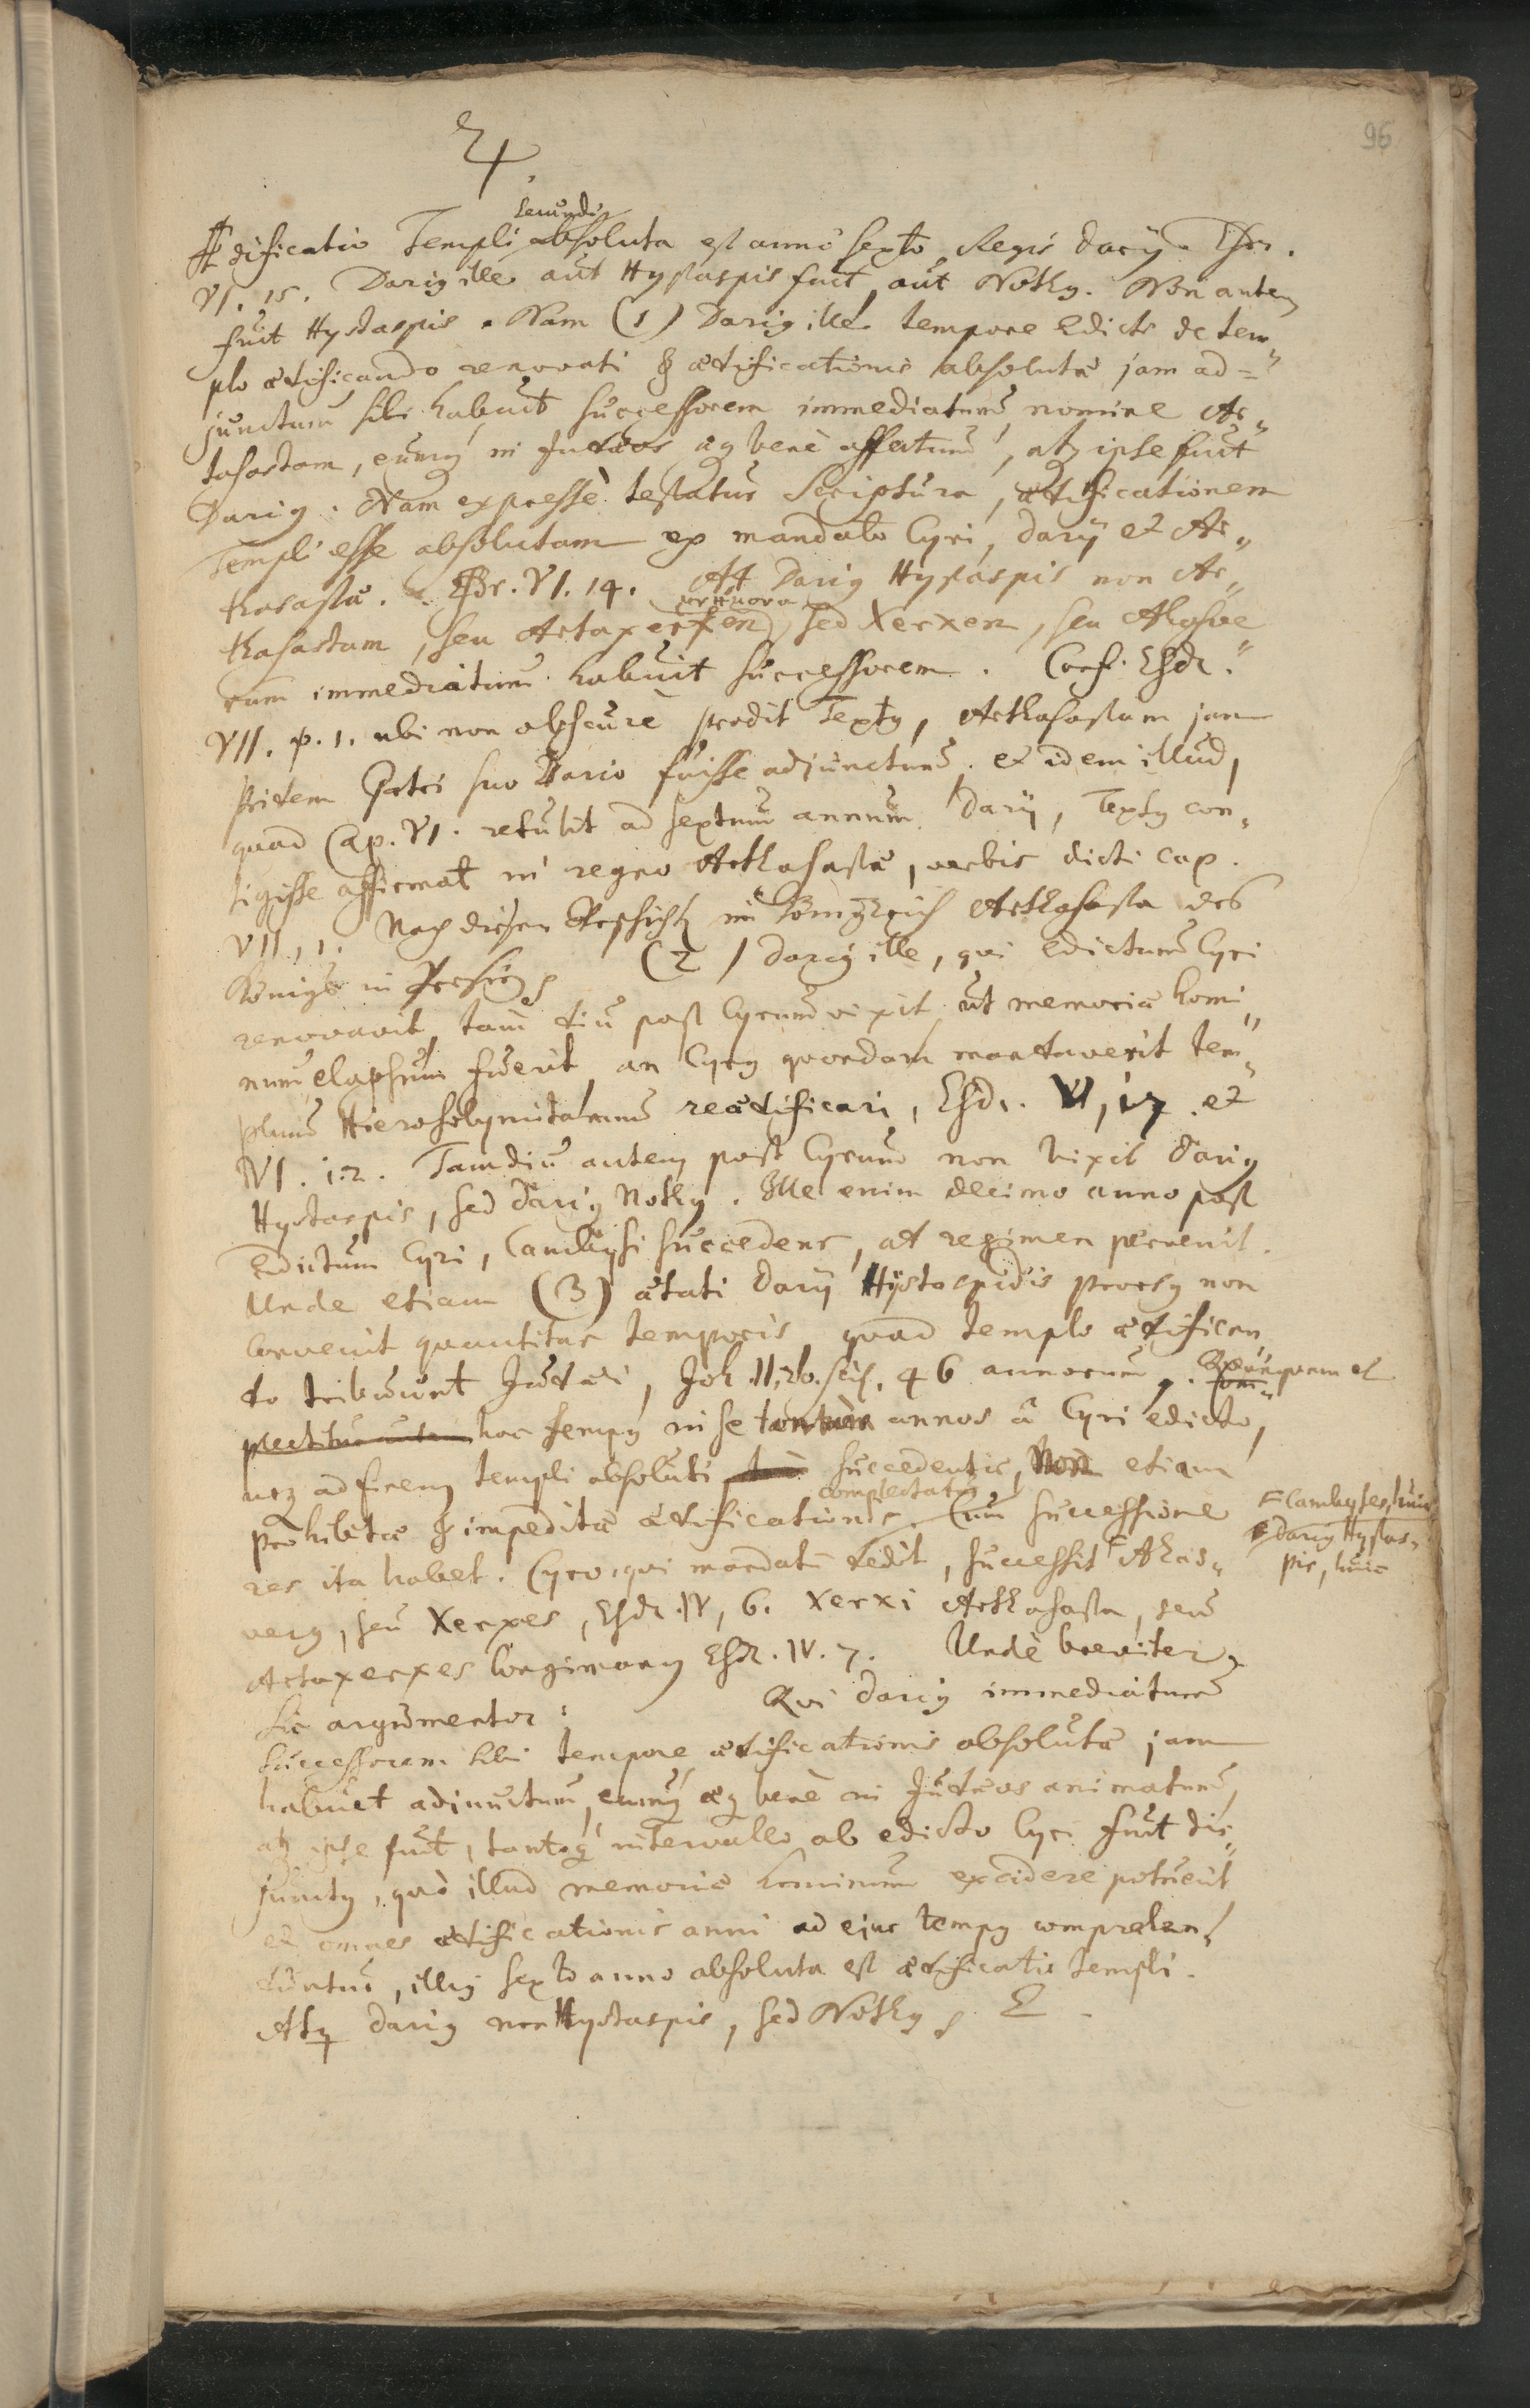 96
4.
secundi
Ædificatio Templi absoluta est anno sexto Regis Darij. Esr.
VI. 15. Darig ille aut Hystaspis fuit, aut Nothg. Non autem
fuit Hystaspis. Nam (1) Darig ille tempore Edicti de tem„
plo ædificando renovati & ædificationis absolutæ jam ad=
junctum sibi habuit successorem immediatum, nomine Ar„
tasastam, eumq in Judæos æq benè affectum, atq ipse fuit
Darig. Nam expressè testatur Scriptura, ædificationem
Templi esse absolutam ex mandato Cyri, Darij et Ar„
thasastæ. Esr. VI. 14. At Darig Hystaspis non Ar„
thasastam, seu Artaxerxen, sed Xerxen, seu Ahasve
rum immediatum habuit successorem. Conf. Esdr.
VII. p. 1. ubi non obscurè prodit Textg, Arthasastam jam
pridem Patri suo Dario fuisse adjunctum, et idem illud,
quod Cap. VI. retulit ad sextum annum Darij, Textg con„
tigisse affirmat in regno Arthasastæ, verbis dicti cap.
VII, 1. Nach diesen Geschicht im Königreich Arthasasta des
Königs in Persien (2) Darig ille, qui edictum Cyri
renovavit, tam diu post Cyrum vixit, ut memoriâ homi„
num elapsum fuerit, an Cyrg quondam mandaverit tem„
plum Hierosolymitanum reædificari, Esdr. V, 17. et
VI. 1. 2. Tamdiu autem post Cyrum non vixit Darig
Hystaspis, sed Darig Nothg. Ille enim decimo anno post
Edictum Cyri, Cambysi succedens, ad regimen pervenit.
Unde etiam (3) ætati Darij Hystaspidis prorsg non
convenit quantitas temporis, quod templo ædifican„
do tribuunt Judæi, Joh. II, 20. scil. 46 annorum.
hoc tempg in se annos à Cyri edicto,
usq ad finem templi absoluti succedentis, etiam
complectatur
prohibitæ & impeditæ ædificationis. Cum successione
res ita habet. Cyro, qui mandatum dedit, successit Ahas„
Cambyses, huic
Darig Hystas„
pis, huic
verg, seu Xerxes, Esdr. IV, 6. Xerxi Arthasasta, seu
Artaxerxes longimang Esdr. IV. 7. Unde breviter
sic argumentor: Qvi Darig immediatum
successorem sibi tempore ædificationis absolutæ jam
habuit adjunctum, eumq æq benè in Judæos animatum,
atq ipse fuit, tantoq intervallo ab edicto Cyri fuit dis„
junctg, quò illud memoriâ hominum excidere potuerit
et omnes ædificationis anni ad ejus tempg comprehen„
duntur, illig sexto anno absoluta est ædificatio templi.
Atq Darig non Hystaspis, sed Nothg E.